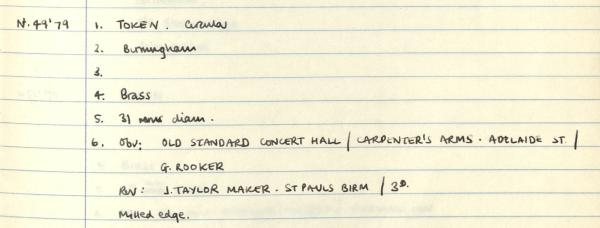 N. 49'79 1. TOKEN. Circular
2. Birmingham
3.
4. Brass
5. 31 mms diam.
6. Obv: OLD STANDARD CONCERT HALL / CARPENTER'S ARMS. ADELAIDE ST. /
G. ROOKER
Rev: J. TAYLOR MAKER. ST PAULS BIRM / 3D.
Milled edge.